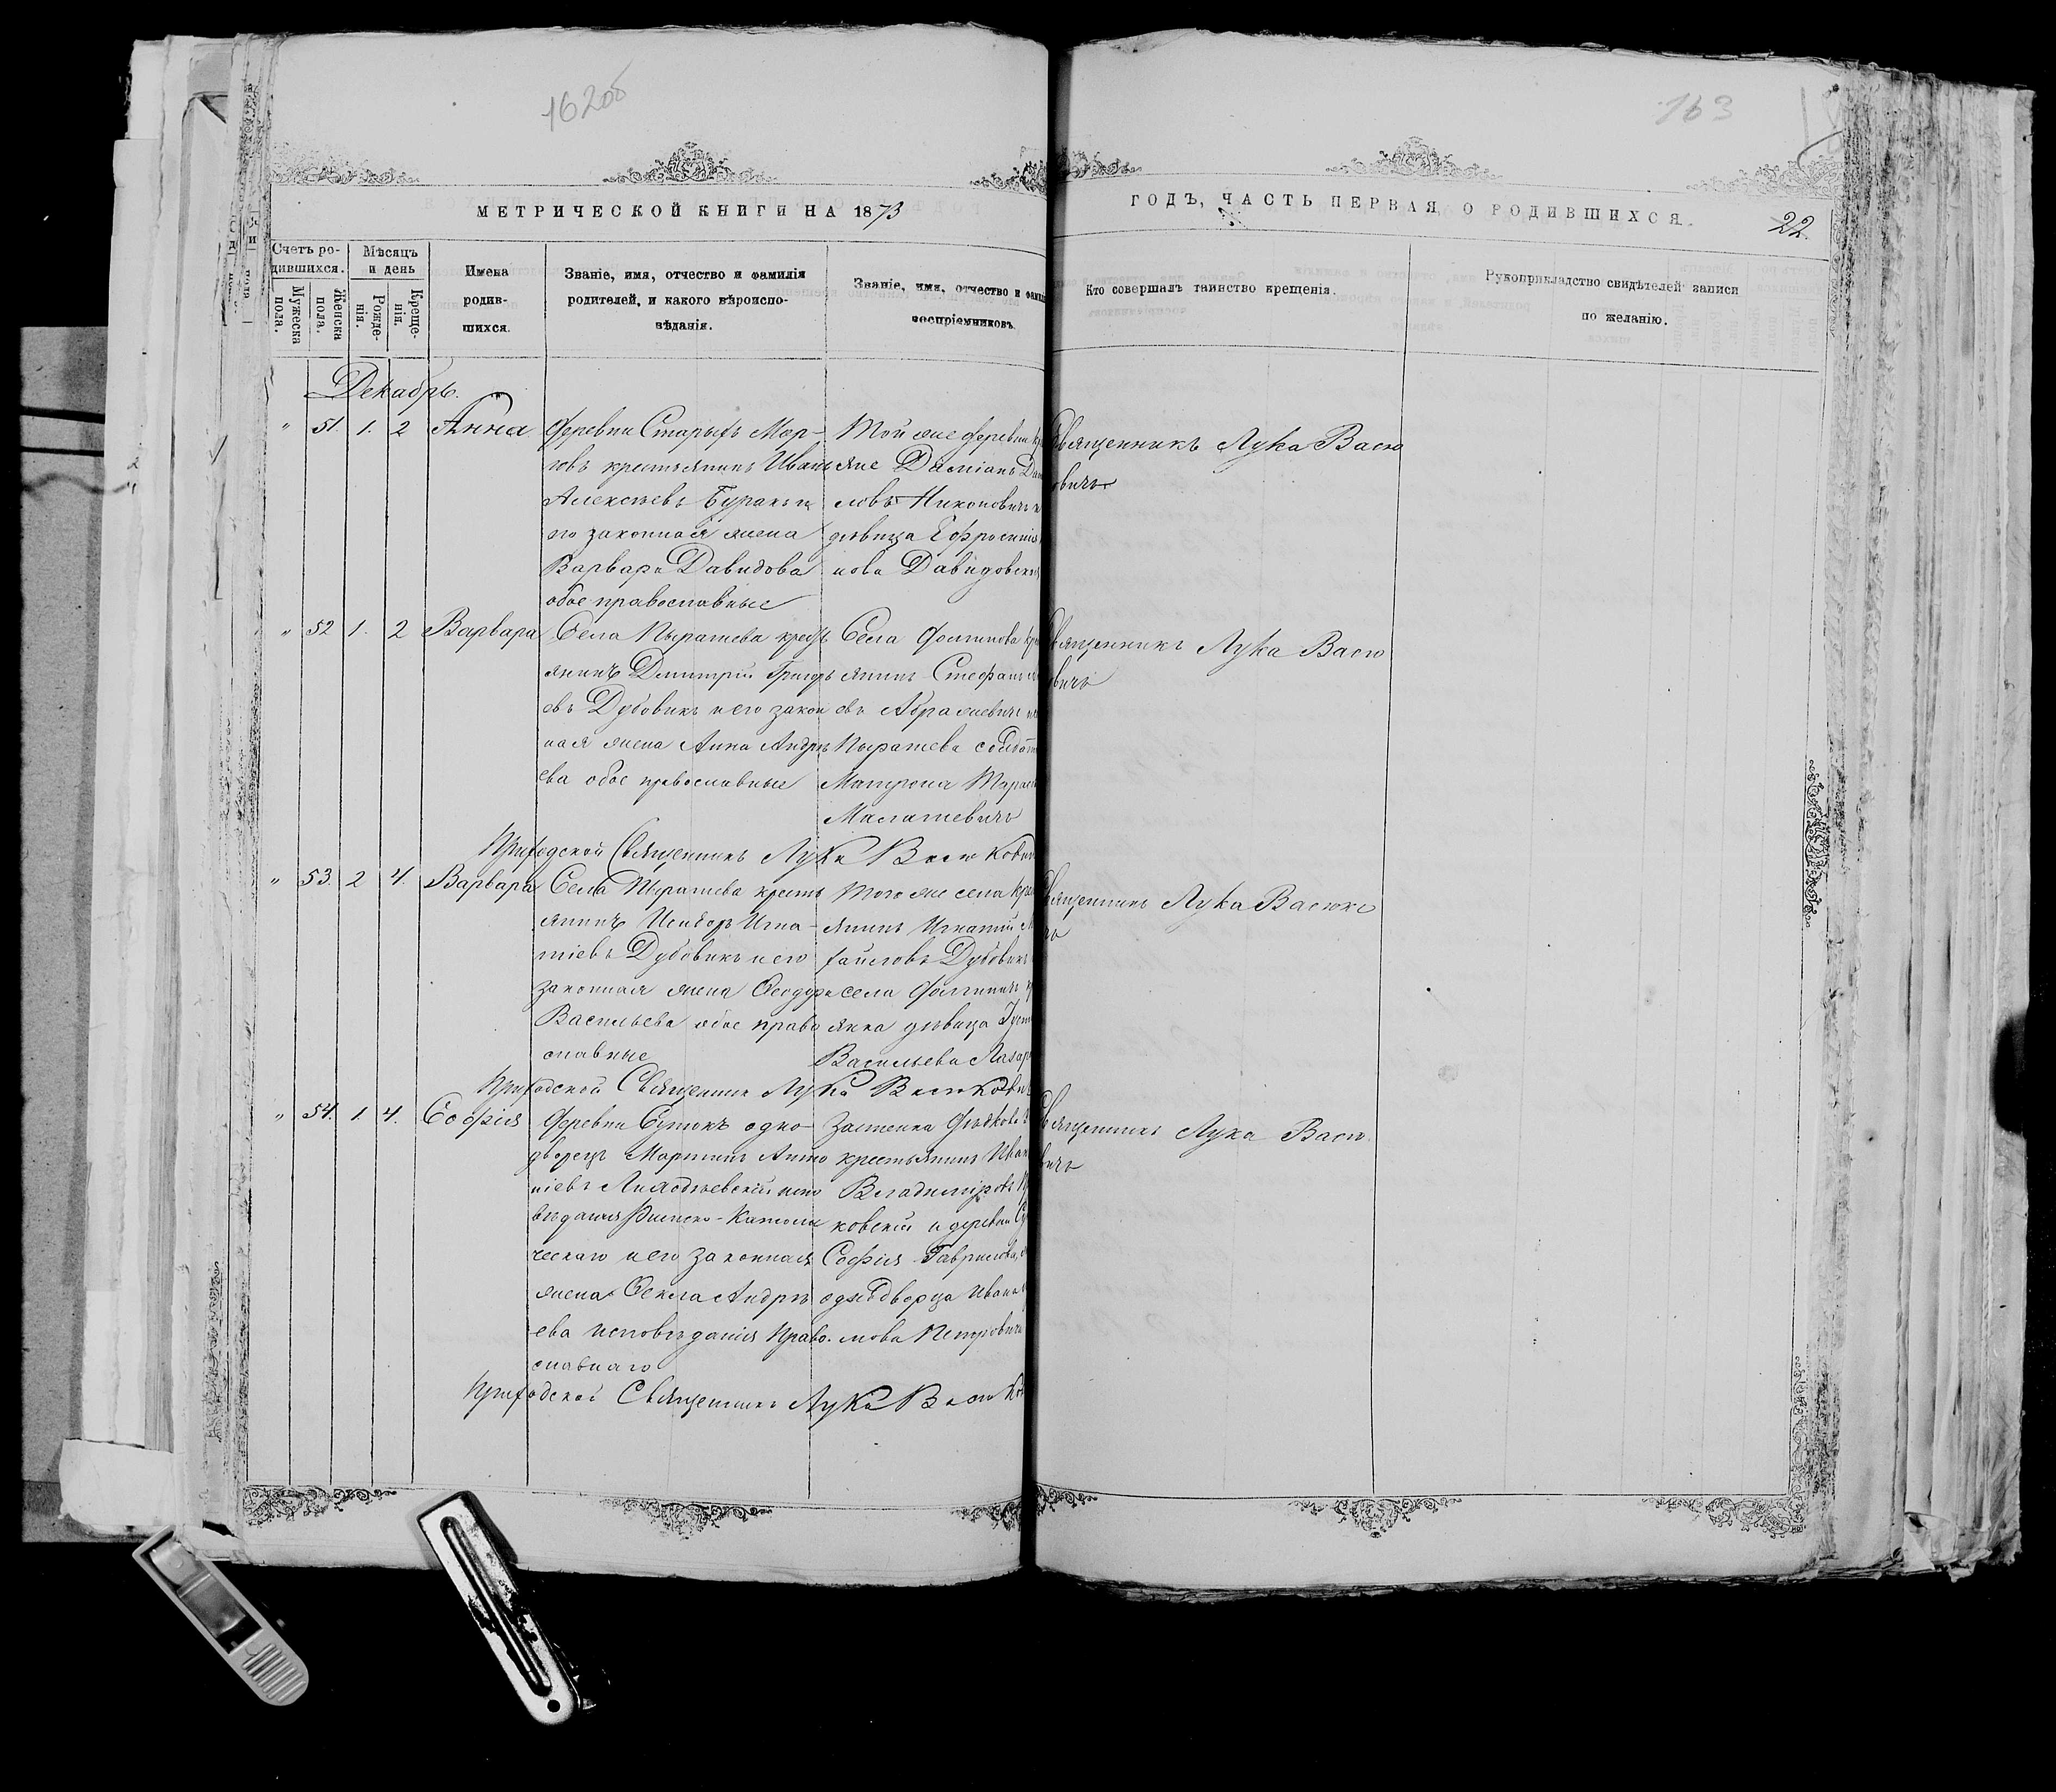 162об
163
МЕТРИЧЕСКОЙ КНИГИ НА 1873
ГОДЪ, ЧАСТЬ ПЕРВАЯ, О РОДИВШИХСЯ.
22.
Счетъ ро-
дившихся.
Мужеска
пола.
Женска
пола.
Мѣсяцъ
и день
Рожде-
нія.
Креще-
нія.
Имена
родив-
шихся.
Званіе, имя, отчество и фамилія
родителей, и какого вѣроиспо-
вѣданія.
Званіе, имя, отчество и фами
воспріемниковъ
Кто совершалъ таинство крещенія.
Рукоприкладство свидѣтелей записи
по желанію.
Декабрь.
" 51. 1. 2 Анна
деревни Старыхъ Мор-
говъ крестьянинъ Иванъ
Алексѣевъ Буракъ и
его законная жена
Варвара Давидова
обое православные
Той же деревни
яне Даміанъ
ловъ Никоновичъ и
дѣвица Ефросинія
нова Давидовская
Священникъ Лука Васю
овичъ
" 52 1. 2 Варвара
Села Пырашева крестъ
янинъ Димитрій Григорь
евъ Дубовикъ и его закон
ная жена Анна Андрѣ
ева обое православные
Села
янинъ Стефанъ
евъ Абрамевичъ
Пырашева солдат
Матрона Тарас
Малашевичъ
Священникъ Лука Васю
вичъ
Приходской Священникъ Лука Васюкович
" 53. 2 4. Варвара
Села Пырашева кресть
янинъ Исидоръ Игна-
тіевъ Дубовикъ и его
законная жена Ѳеодора
Васильева обое право
славные
Того же села кре
янинъ Игнатій
хаиловъ Дубовикъ
села
янка дѣвица
Васильева Лазар
Священникъ Лука Васюко
чъ
Приходской Священникъ Лука Васюкович
" 54. 1 4. Софія
деревни одно-
дворецъ Мартинъ Анто
ніевъ испо
вѣданія Римско-Католи
ческаго и его законная
жена Ѳекла Андрѣ
ева исповѣданія Право-
славнаго
Застенка
крестьянинъ Иван
Владиміровъ
ковскій и деревни
Софія Гаврилова,
однодворца Ивана
мова Петровича
Священникъ Лука Васю
вичъ
Приходской Священникъ Лука Васюко